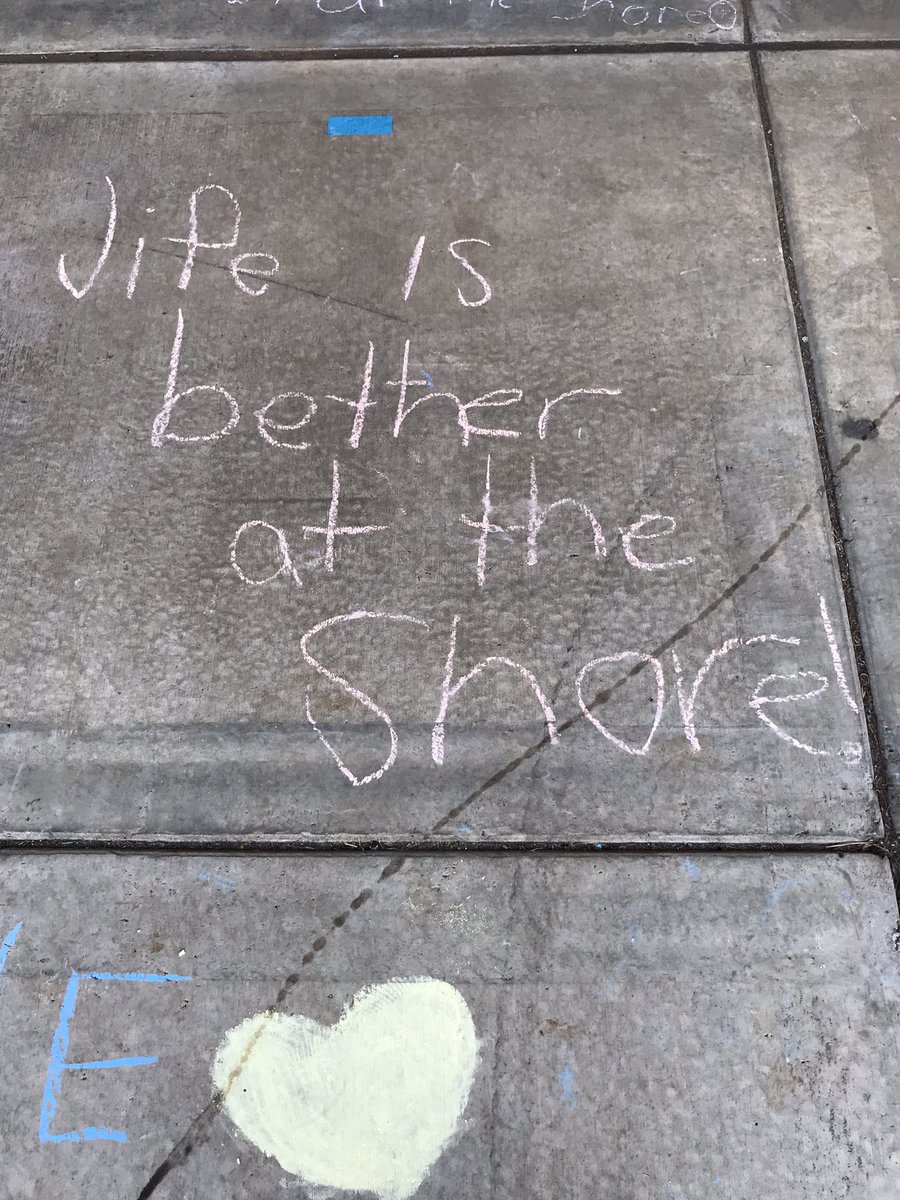 life is
bether
at the
Shore!
E